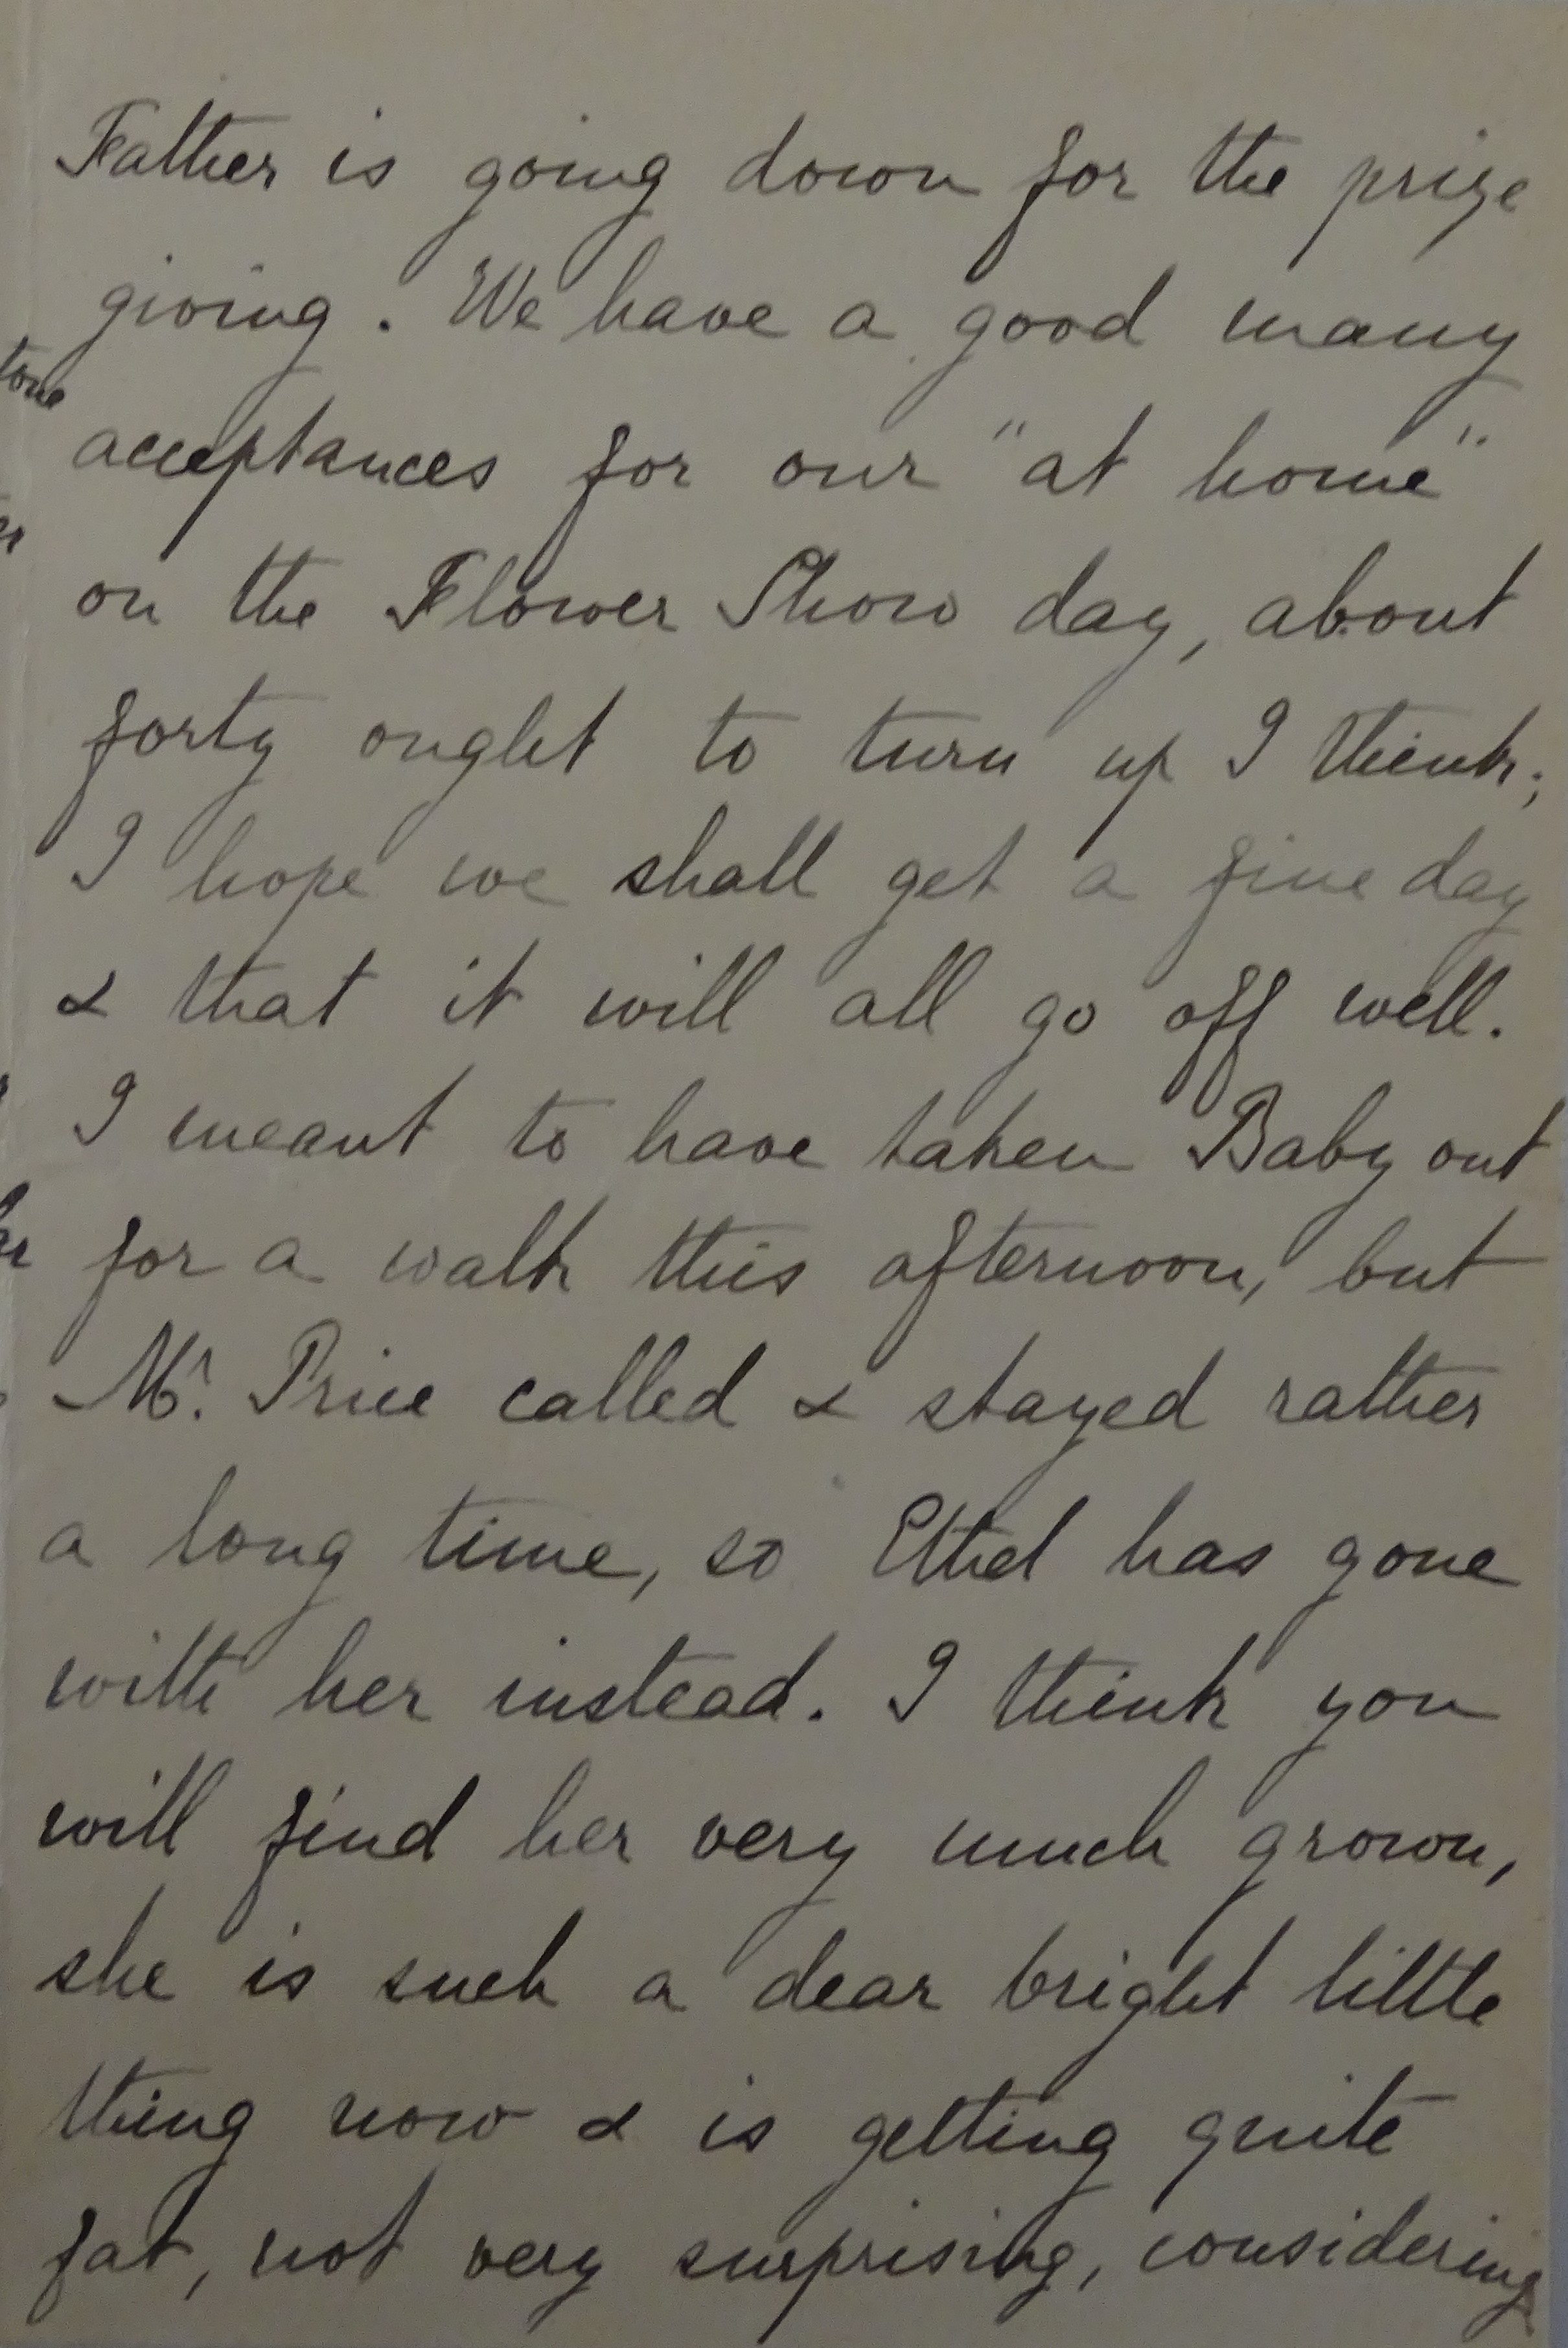 Father is going down for the prize
giving. We have a good many
acceptances for our "at home".
on the Flower Show day, about
forty ought to turn up I think;
I hope we shall get a fine day
& that it will all go off well.
I meant to have taken Baby out
for a walk this afternoon, but
Mr. Price called & stayed rather
a long time, so Ethel has gone
with her instead. I think you
will find her very much grown,
she is such a dear bright little
thing now & is getting quite
fat, not very surprising, considering